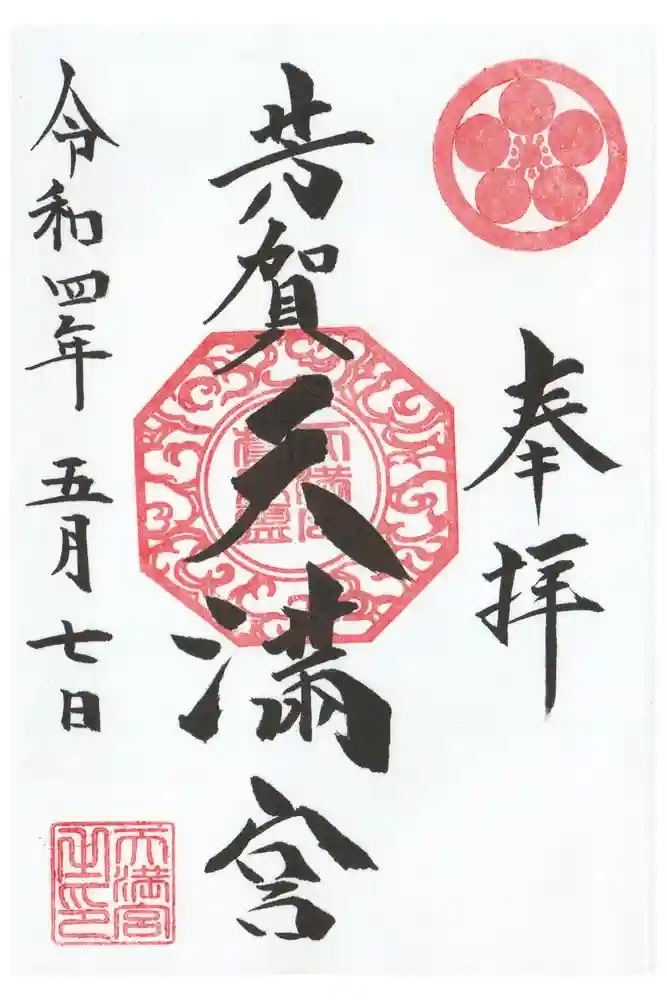 奉拝
芳賀天満宮
令和四年五月七日
天満宮
之印